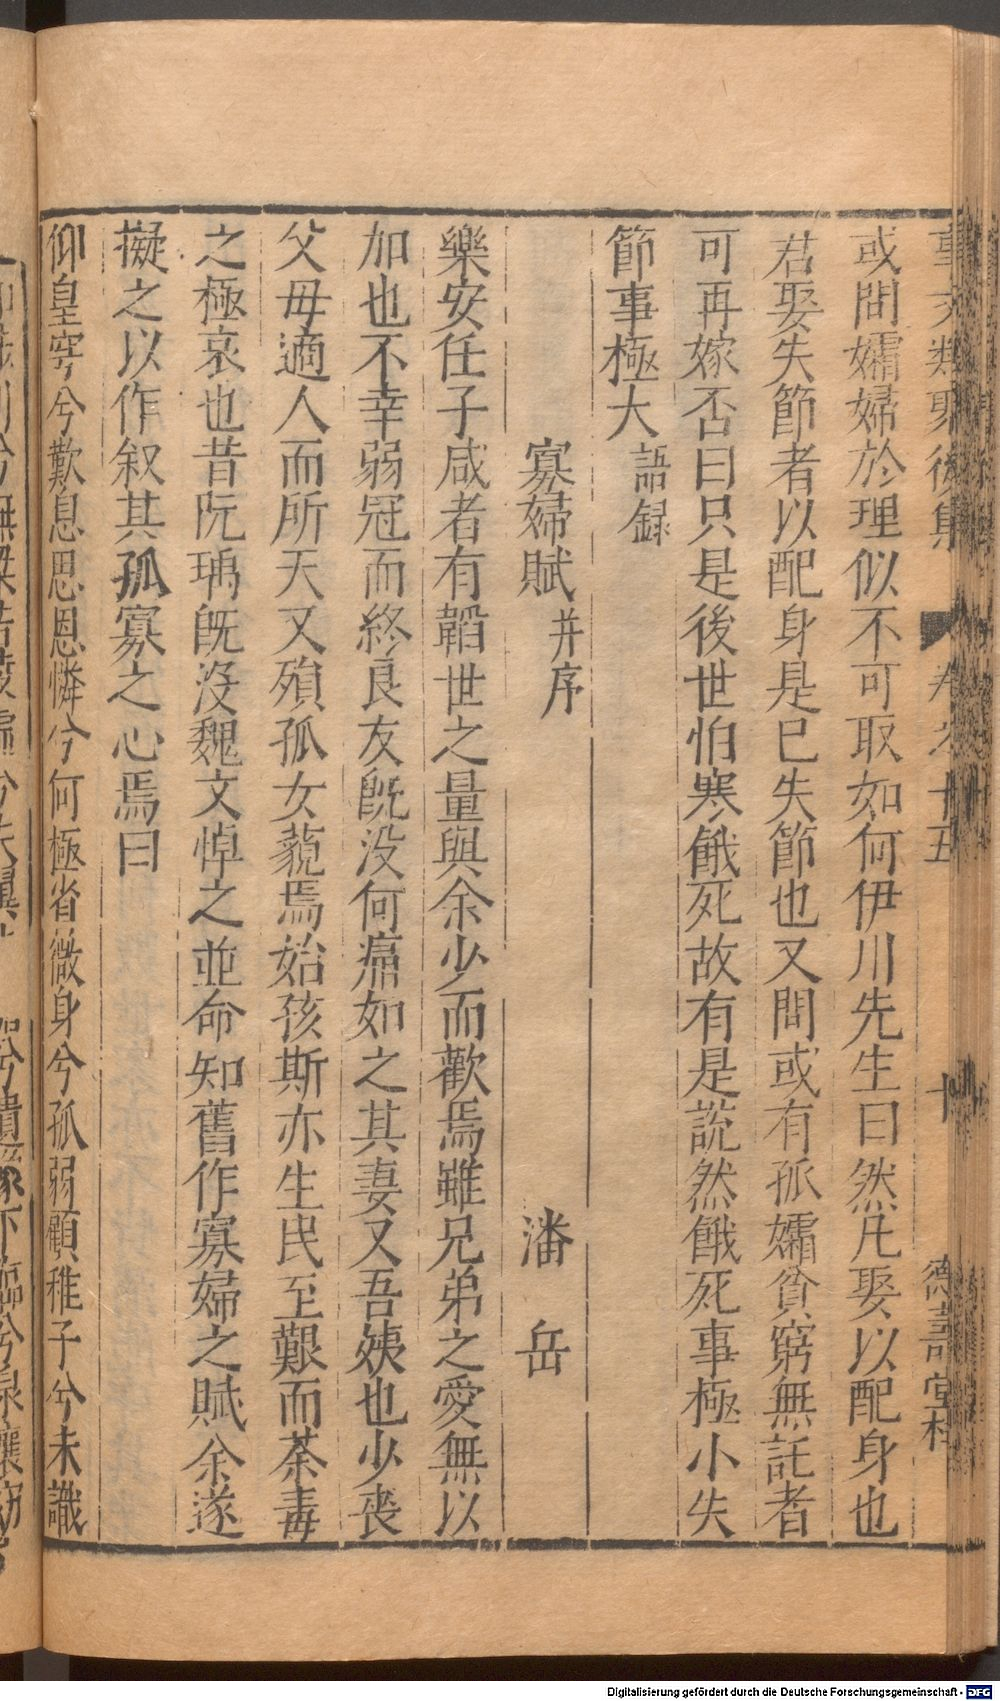 事文類聚後集 卷之十五 十 德壽堂梓
或問孀婦於理似不可取如何伊川先生曰然凡娶以配身也
君娶失節者以配身是已失節也又問或有孤孀貧窮無託者
可再嫁否曰只是後世怕寒餓死故有是説然餓死事極小失
節事極大 語録
寡婦賦 并序 潘岳
樂安任子咸者有韜世之量與余少而歡焉雖兄弟之愛無以
加也不幸弱冠而終良友旣没何痛如之其妻又吾姨也少丧
父母適人而所天又殞孤女藐焉始孩斯亦生民至艱而荼毒
之極哀也昔阮瑀旣没魏文悼之並命知舊作寡婦之賦余遂
擬之以作叙其孤寡之心焉曰
仰皇穹兮歎息思恩憐兮何極省微身兮孤弱顧稚子兮未識
Digitalisierung gefördert durch die Deutsche Forschungsgemeinschaft - DFG